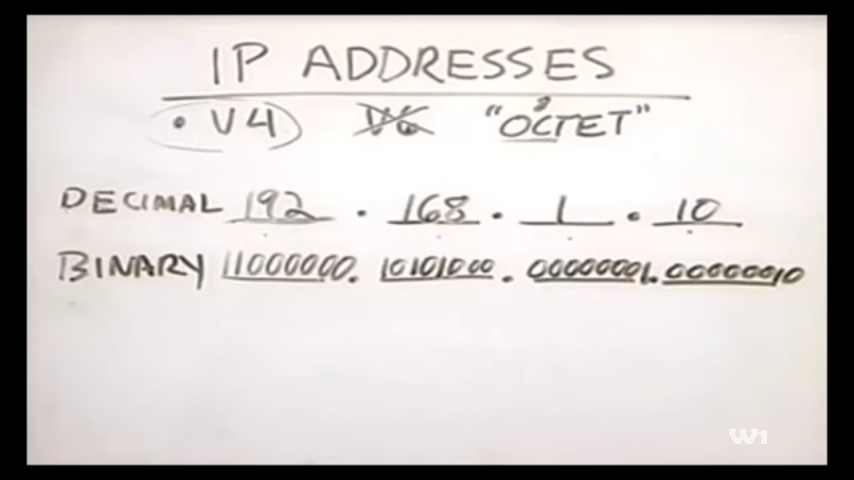 IP ADDRESSES
• V4 V6 "OCTET"
8
DECIMAL 192 . 168 . 1 . 10
BINARY 11000000. 10101000 . 00000001. 00000010
W1